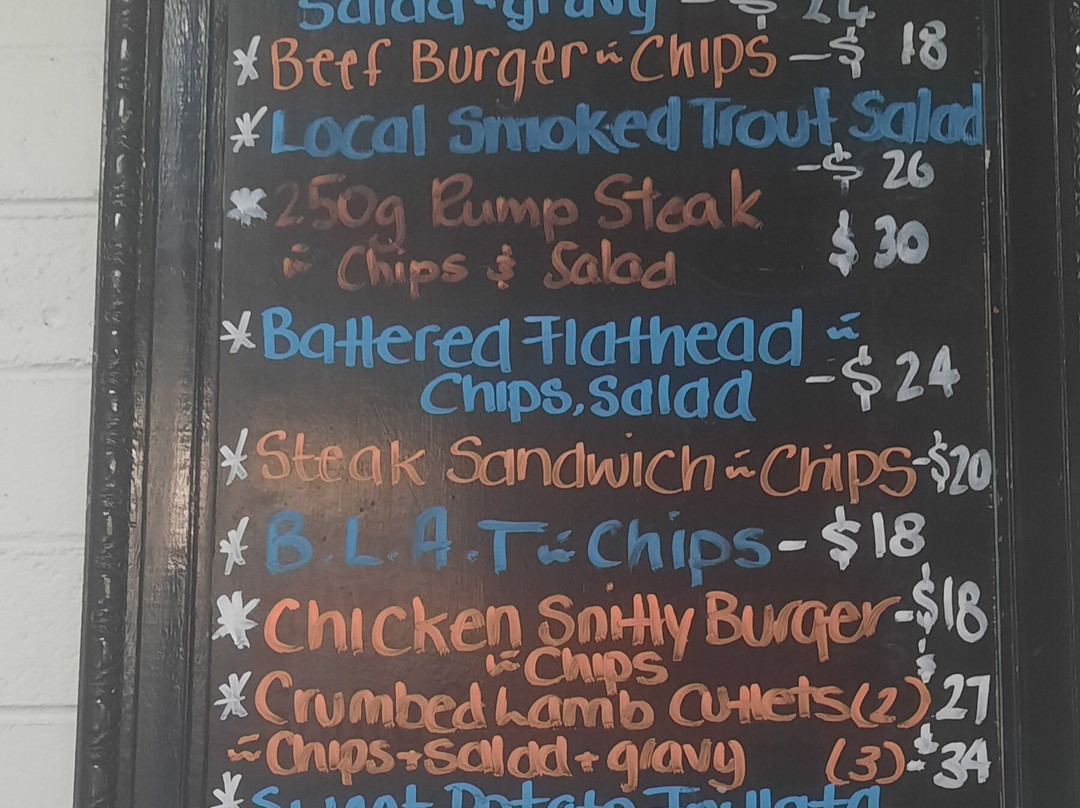 Salad + gravy - $ 24
* Beef Burger w Chips - $ 18
* Local Smoked Trout Salad
- $ 26
* 250g Rump Steak
w Chips & Salad $ 30
* Battered Flathead w
Chips, Salad - $ 24
* Steak Sandwich w Chips - $20
* B.L.A.T w Chips - $18
* Chicken Snitty Burger - $18
w Chips
* Crumbed Lamb Cutlets (2) $27
w Chips + salad + gravy (3) - $34
* Sweet Potato